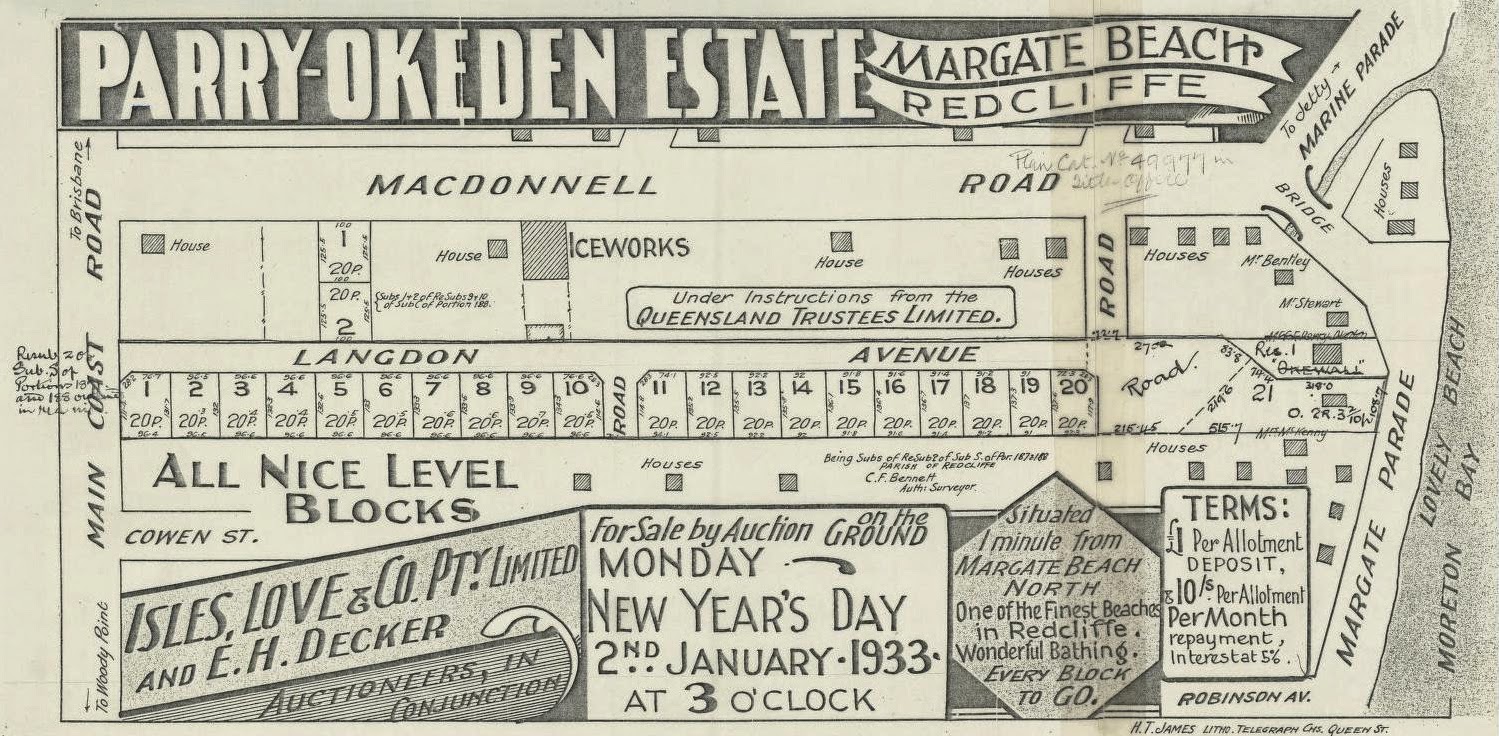 PARRY-OKEDEN ESTATE
MARGATE BEACH
REDCLIFFE
To Jetty
MARINE PARADE
To Brisbane
MAIN COAST ROAD
To Woody Point
MACDONNELL ROAD
Plan Cat. No 49977 m
Titles Office
BRIDGE
Houses
House
100
1
125·5
125·5
20P.
100
20P.
125·5
125·5
2
100
Subs 1+2 of ReSubs 9+10
of Sub C of Portion 188.
House
ICEWORKS
House
Houses
ROAD
Houses
Mr Bentley
Mr Stewart
Under Instructions from the
QUEENSLAND TRUSTEES LIMITED.
LANGDON AVENUE
Resub 2 of
Sub. S of
Portions 187
and 188
1 2 3 4 5 6 7 8 9 10
ROAD
11 12 13 14 15 16 17 18 19 20
20P. 20P. 20P. 20P. 20P. 20P. 20P. 20P. 20P. 20P.
20P. 20P. 20P. 20P. 20P. 20P. 20P. 20P. 20P. 20P.
Road.
83·8
74·4
219·6
Res. 1
OKEWALL
318·0
21
O. 2R. 3 7/10
208·7
215·45
515·7
Houses
Mrs McKenny
ALL NICE LEVEL
BLOCKS
Houses
Being Subs of ReSub 2 of Sub S. of Por. 187 & 188
PARISH OF REDCLIFFE
C.F. Bennett
Auth: Surveyor.
COWEN ST.
MARGATE PARADE
LOVELY BEACH
MORETON BAY
ISLES, LOVE & CO. PTY. LIMITED
AND E.H. DECKER
AUCTIONEERS, IN
CONJUNCTION
For Sale by Auction on the GROUND
MONDAY
NEW YEAR'S DAY
2ND JANUARY · 1933 ·
AT 3 O'CLOCK
Situated
1 minute from
MARGATE BEACH
NORTH
One of the Finest Beaches
in Redcliffe.
Wonderful Bathing.
EVERY BLOCK
TO GO.
TERMS:
£1 Per Allotment
DEPOSIT,
& 10/s Per Allotment
Per Month
repayment,
Interest at 5%.
ROBINSON AV.
H.T. JAMES LITHO. TELEGRAPH CHS. QUEEN ST.